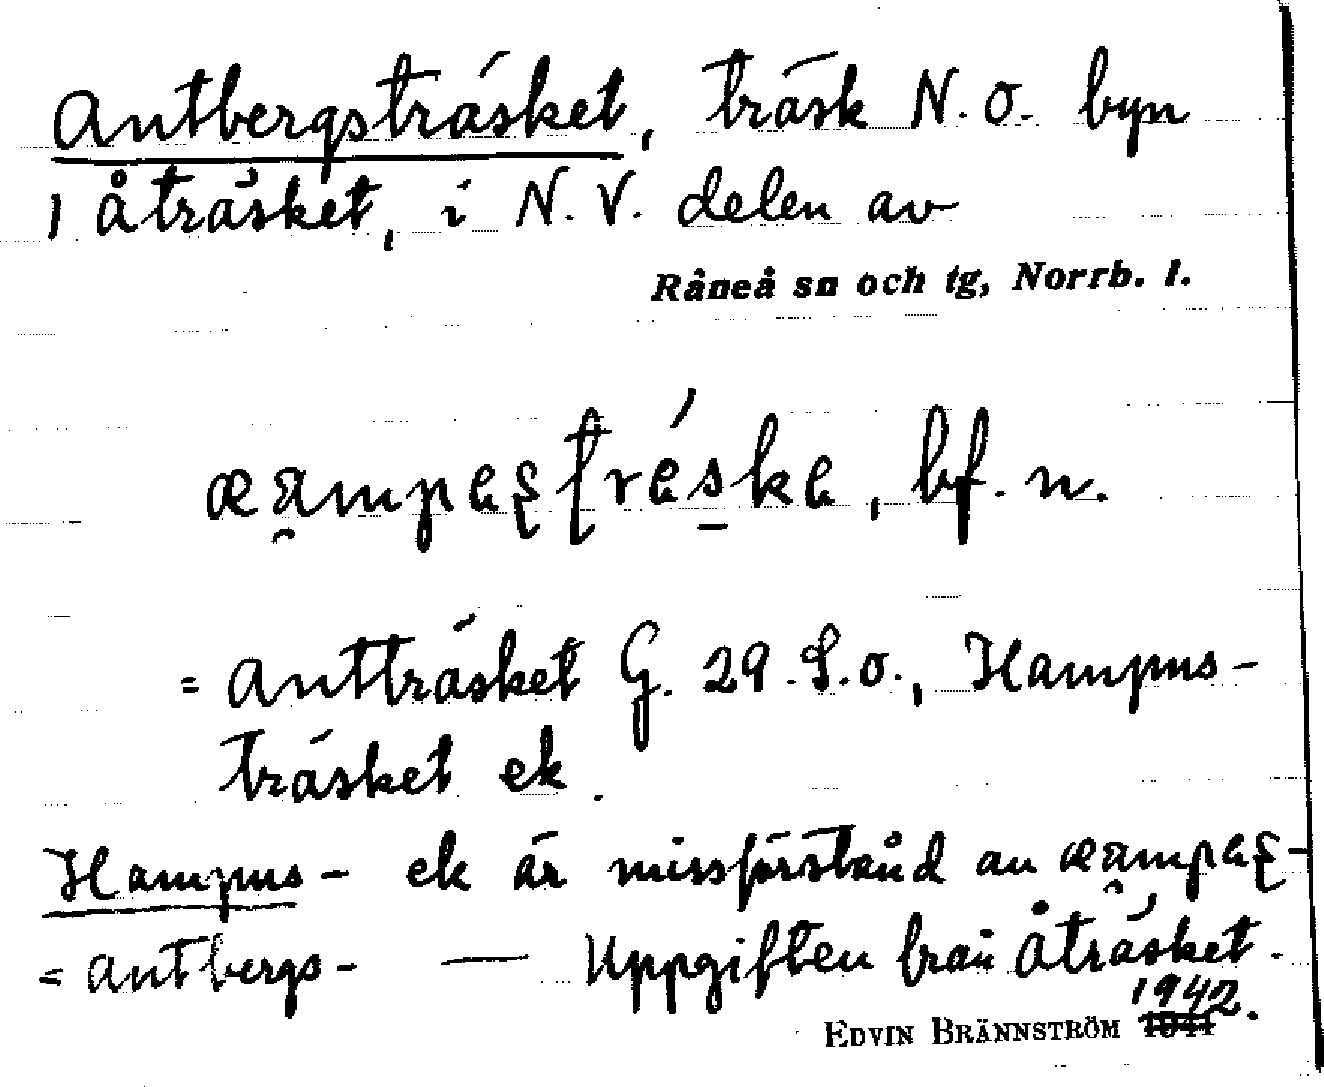 Antbergsträsket, träsk N.O. byn
i Åträsket, i N.V. delen av
Råneå sn och tg, Norrb. l.
, bf. n.
= Antträsket G. 29 S.o., Hampus-
träsket ek.
Hampus- ek är missförstånd av
= Antbergs- — Uppgiften från Åträsket.
1942.
EDVIN BRÄNNSTRÖM 1941